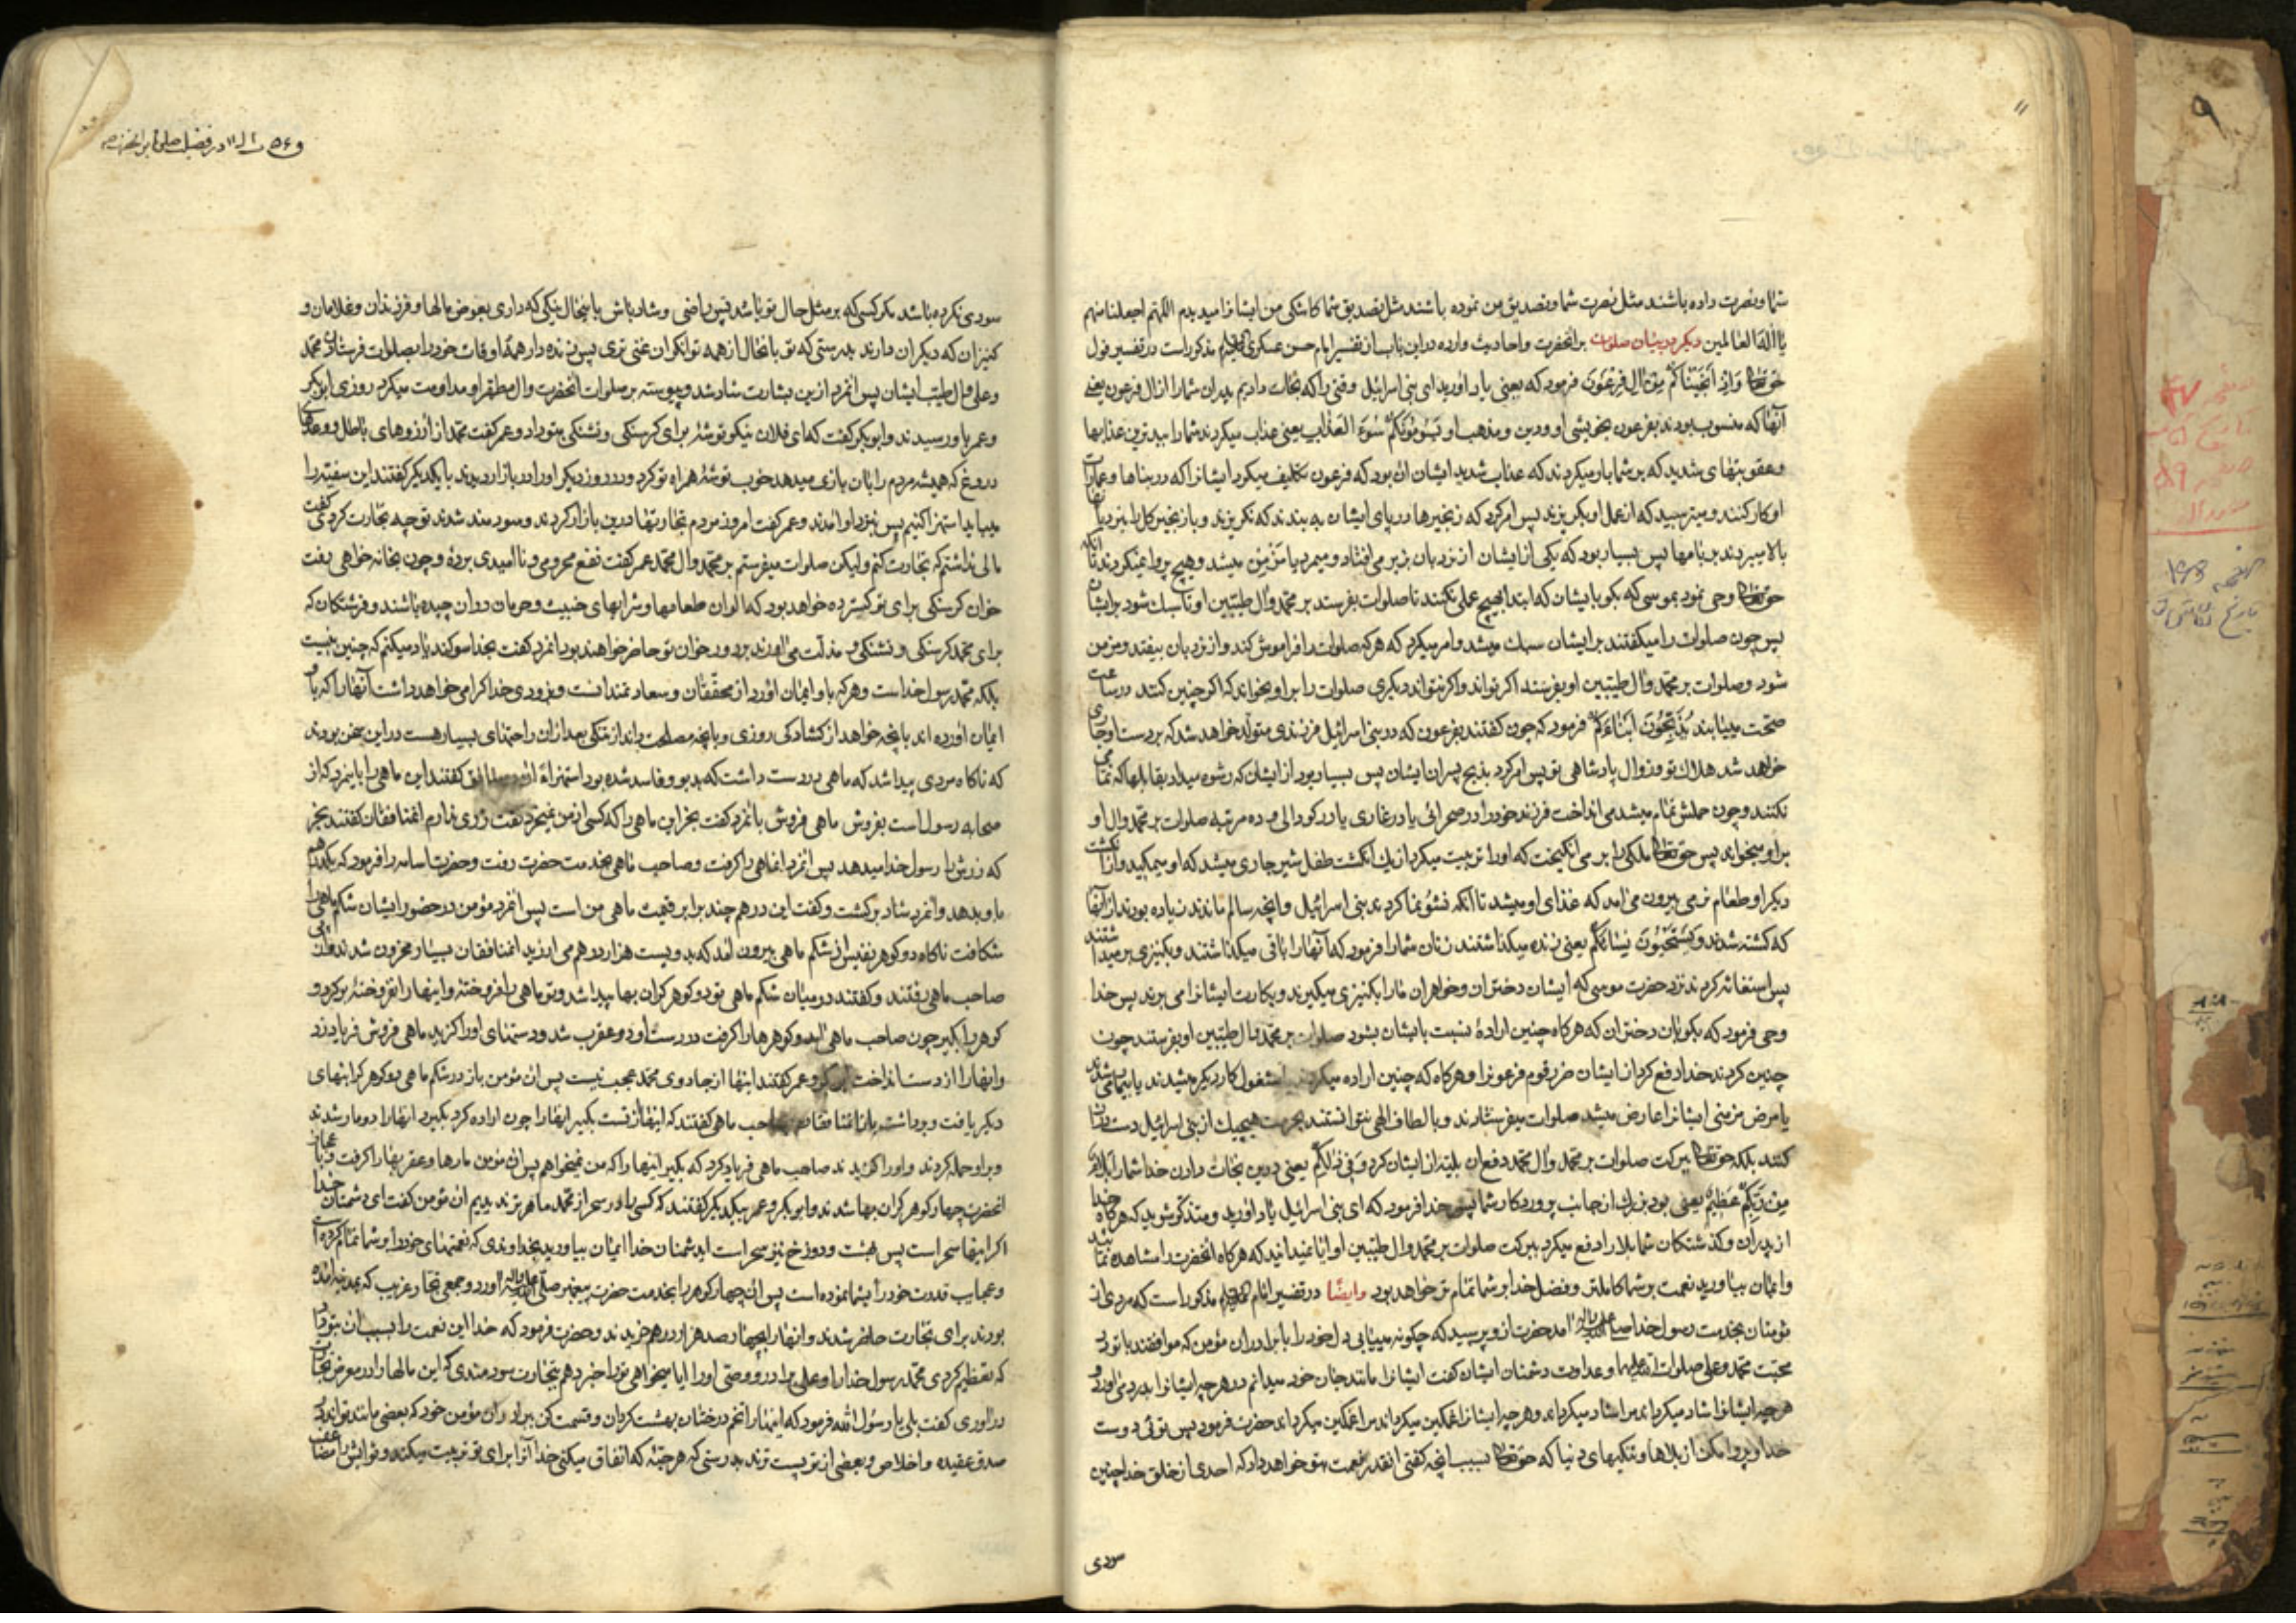 ۱۱
شما و نصرت داده باشند مثل نصرت شما و تصدیق من نموده باشند مثل تصدیق شما کاشکی من ایشانرا میدیدم اللهم اجعلنا منهم
یا اله العالمین دیکر در بیان صلوات بر آنحضرت و احادیث وارده در این باب از تفسیر امام حسن عسکری مذکور است در تفسیر قول
حق تعا وَاِذ اَنجَینَاکُم مِن آلِ فِرعَونَ فرمود که یعنی یاد آورید ای بنی اسرائیل وقتی را که نجات دادیم پدران شما را از آل فرعون یعنی
آنها که منسوب بودند بفرعون بخویشی او و دین و مذهب او یَسُومُونَکُم سُوءَ العَذابِ یعنی عذاب میکردند شما را ببدترین عذابها
و عقوبتهای شدید که بر شما بار میکردند که عذاب شدید ایشان آن بود که فرعون تکلیف میکرد ایشانرا که در بناها و عمارت
او کار کنند و میترسید که از عمل او بکریزند پس امر کرد که زنجیرها در پای ایشان به بندند که نکریزند و با زنجیر کل بر نردبانها
بالا میبردند بر بامها پس بسیار بود که یکی از ایشان از نردبان بزیر می افتاد و میمرد یا مزمن میشد و هیچ پروا نمیکردند تا آنکه
حق تعا وحی نمود بموسی که بکو بایشان که ابتدا بهیچ عملی نکنند تا صلوات بفرستند بر محمد و آل طیبین او تا سبک شود بر ایشان
پس چون صلوات را میکفتند بر ایشان سبک میشد و امر میکرد که هر که صلوات را فراموش کند و از نردبان بیفتد و مزمن
شود و صلوات بر محمد و آل طیبین او بفرستد اکر تواند و اکر نتواند دیکری صلوات را بر او بخواند که اکر چنین کنند در ساعت
صحت مییابند یُذَبِّحُونَ اَبنَاءَکُم فرمود که چون کفتند بفرعون که در بنی اسرائیل فرزندی متولد خواهد شد که بر دست او جاری
خواهد شد هلاک تو و زوال پادشاهی تو پس امر کرد بذبح پسران ایشان پس بسیار بود از ایشان که رشوه میداد بقابلها که نمامی
نکنند و چون حملش تمام میشد می انداخت فرزند خود را در صحرائی یا در غاری یا در کودالی و ده مرتبه صلوات بر محمد و آل او
بر او میخواند پس حق تعا ملکی را بر می انکیخت که او را تربیت میکرد از یک انکشت طفل شیر جاری میشد که او میمکید و از انکشت
دیکر او طعام نرمی بیرون می آمد که غذای او میشد تا آنکه نشو نما کردند بنی اسرائیل و آنچه سالم ماندند زیاده بودند از آنها
که کشته شدند وَ یَستَحیُونَ نِسَائَکُم یعنی زنده میکذاشتند زنان شما را فرمود که آنها را باقی میکذاشتند و بکنیزی بر میداشتند
پس استغاثه کردند نزد حضرت موسی که ایشان دختران و خواهران ما را بکنیزی میکیرند و بکارت ایشانرا می برند پس خدا
وحی فرمود که بکو بآن دختران که هرکاه چنین اراده نسبت بایشان بشود صلوات بر محمد و آل طیبین او بفرستند چون
چنین کردند خدا دفع کرد از ایشان ضرر قوم فرعونرا و هرکاه که چنین اراده میکردند مشغول کار دیکر میشدند یا بیمار میشدند
یا مرض مزمنی ایشانرا عارض میشد صلوات میفرستادند و بالطاف الهی نتوانستند بحرمت هیچیک از بنی اسرائیل دست دراز
کنند بلکه حق تعا ببرکت صلوات بر محمد و آل محمد دفع آن بلیه از ایشان کرد وَ فِی ذلِکُم یعنی در این نجات دادن خدا شما را بَلاءٌ
مِن رَبِّکُم عَظِیمٌ یعنی بود بزرک از جانب پروردکار شما پس خدا فرمود که ای بنی اسرائیل یاد آورید و متذکر شوید که هرکاه خدا
از پدران و کذشتکان شما بلا را دفع میکرد ببرکت صلوات بر محمد و آل طیبین او آیا نمیدانید که هرکاه آنحضرت را مشاهده نمائید
و ایمان بیاورید نعمت بر شما کاملتر و فضل خدا بر شما تمام تر خواهد بود وایضًا در تفسیر امام مذکور است که مردی از
مؤمنان بخدمت رسول خدا صلی الله علیه و آله آمد حضرت از و پرسید که چکونه مییابی دل خود را با برادران مؤمن که موافقند با تو در
محبت محمد و علی صلوات الله علیهما و عداوت دشمنان ایشان کفت ایشانرا مانند جان خود میدانم در هر چه ایشانرا بدرد می آورد و
هر چه ایشانرا شاد میکرداند مرا شاد میکرداند و هر چه ایشانرا غمکین میکرداند مرا غمکین میکرداند حضرت فرمود پس توئی دوست
خدا و پروا مکن از بلاها و تنکیهای دنیا که حق تعا بسبب آنچه کفتی آنقدر نعمت بتو خواهد داد که احدی از خلق خدا چنین
سودی
در فضیلت صلوة بر آنحضرت ص
سودی نکرده باشد مکر کسی که بر مثل حال تو باشد پس راضی و شاد باش باینحال نیکی که داری بعوض مالها و فرزندان و غلامان و
کنیزان که دیکران دارند بدرستی که تو بانحال از همه توانکران غنی تری پس زنده دار همه اوقات خود را بصلوات فرستادن بر محمد
و علی و آل طیب ایشان پس آنمرد از این بشارت شاد شد و پیوسته بر صلوات آنحضرت و آل مطهر او مداومت میکرد روزی ابوبکر
و عمر باو رسیدند و ابوبکر کفت که ای فلان نیکو توشه برای کرسنکی و تشنکی بتو داد و عمر کفت محمد از آرزوهای باطل و وعدهای
دروغ که همیشه مردم را بآن بازی میدهد خوب توشه همراه تو کرد و در روز دیکر او را در بازار دیدند با یکدیکر کفتند این سفیه را
میباید استهزا کنیم پس بنزد او آمدند و عمر کفت امروز مردم تجارتها در این بازار کردند و سودمند شدند تو چه تجارت کردی کفت
مالی نداشتم که تجارت کنم و لیکن صلوات میفرستم بر محمد و آل محمد عمر کفت نفع محرومی و ناامیدی برده و چون بخانه خواهی رفت
خوان کرسنکی برای تو کسترده خواهد بود که الوان طعامها و شرابهای خیبت و حرمان در آن چیده باشند و فرشتکان که
برای محمد کرسنکی و تشنکی و مذلت می آورند بر دور خوان تو حاضر خواهند بود آنمرد کفت بخدا سوکند یاد میکنم که چنین نیست
بلکه محمد رسول خداست و هر که باو ایمان آورد از محققان و سعادتمندانست و بزودی خدا کرامی خواهد داشت آنها را که باو
ایمان آورده اند بآنچه خواهد از کشادکی روزی و بآنچه مصلحت داند از تنکی بعد از آن راحتهای بسیار هست در این سخن بودند
که ناکاه مردی پیدا شد که ماهی در دست داشت که بدبو و فاسد شده بود استهزاءً کفتند این ماهی را باینمرد که از
صحابه رسول است بفروش ماهی فروش بآنمرد کفت بخر این ماهی را که کسی از من نمیخرد کفت زری ندارم آنمنافقان کفتند بخر
که زرش را رسول خدا میدهد پس آنمرد آنماهی را کرفت و صاحب ماهی بخدمت حضرت رفت و حضرت اسامه را فرمود که یکدرهم
باو بدهد و آنمرد شاد برکشت و کفت این درهم چند برابر قیمت ماهی من است پس آنمرد مؤمن در حضور ایشان شکم ماهی را
شکافت ناکاه دو کوهر نفیس از شکم ماهی بیرون آمد که بدویست هزار درهم می ارزید آنمنافقان بسیار محزون شدند و از پی
صاحب ماهی رفتند و کفتند در میان شکم ماهی تو دو کوهر کران بها پیدا شد و تو ماهی را فروختهٔ و اینها را نفروختهٔ برکرد و
کوهر را بکیر چون صاحب ماهی آمد و کوهرها را کرفت در دست او دو عقرب شد و دستهای او را کزید ماهی فروش فریاد زد
و آنها را از دست انداخت ابوبکر و عمر کفتند اینها از جادوی محمد عجب نیست پس آن مؤمن باز در شکم ماهی دو کوهر کرانبهای
دیکر یافت و برداشت باز آنمنافقان بصاحب ماهی کفتند که اینها از تست بکیر آنها را چون اراده کرد بکیرد آنها را دو مار شدند
و بر او حمله کردند و او را کزیدند صاحب ماهی فریاد کرد که بکیر اینها را که من نمیخواهم پس آن مؤمن مارها و عقربها را کرفت و باعجاز
آنحضرت چهار کوهر کران بها شدند و ابوبکر و عمر بیکدیکر کفتند که کسی را در سحر از محمد ماهر تر ندیدیم آن مؤمن کفت ای دشمنان خدا
اکر اینها سحر است پس بهشت و دوزخ نیز سحر است ای دشمنان خدا ایمان بیاورید بخداوندی که نعمتهای خود را بر شما تمام کرده است
و عجایب قدرت خود را بشما نموده است پس آن چهار کوهر را بخدمت حضرت پیغمبر صلی الله علیه و آله آورد و جمعی تجار غریب که بمدینه آمده
بودند برای تجارت حاضر شدند و آنها را بچهار صد هزار درهم خریدند و حضرت فرمود که خدا این نعمت را بسبب آن بتو داد
که تعظیم کردی محمد رسول خدا را و علی برادر و وصی او را آیا میخواهی ترا خبر دهم بتجارت سودمندی که این مالها را در معرض تجارت
در آوری کفت بلی یا رسول الله فرمود که اینها را تخم درختان بهشت کردان و قسمت کن ببرادران مؤمن خود که بعضی مانند تواند در
صدق عقیده و اخلاص و بعضی از تو پست ترند بدرستی که هر حبهٔ که انفاق میکنی خدا آنرا برای تو تربیت میکند و ثوابش را مضاعف